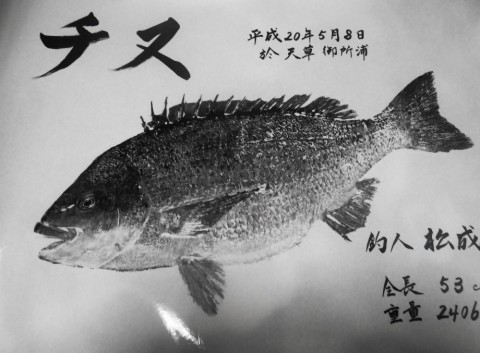 チヌ
平成20年5月8日
於 天草 御所浦
釣人 松成
全長 53 c
重量 2406